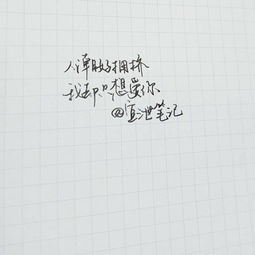 人潭好拥挤
我却只想爱你
@宣泄笔记